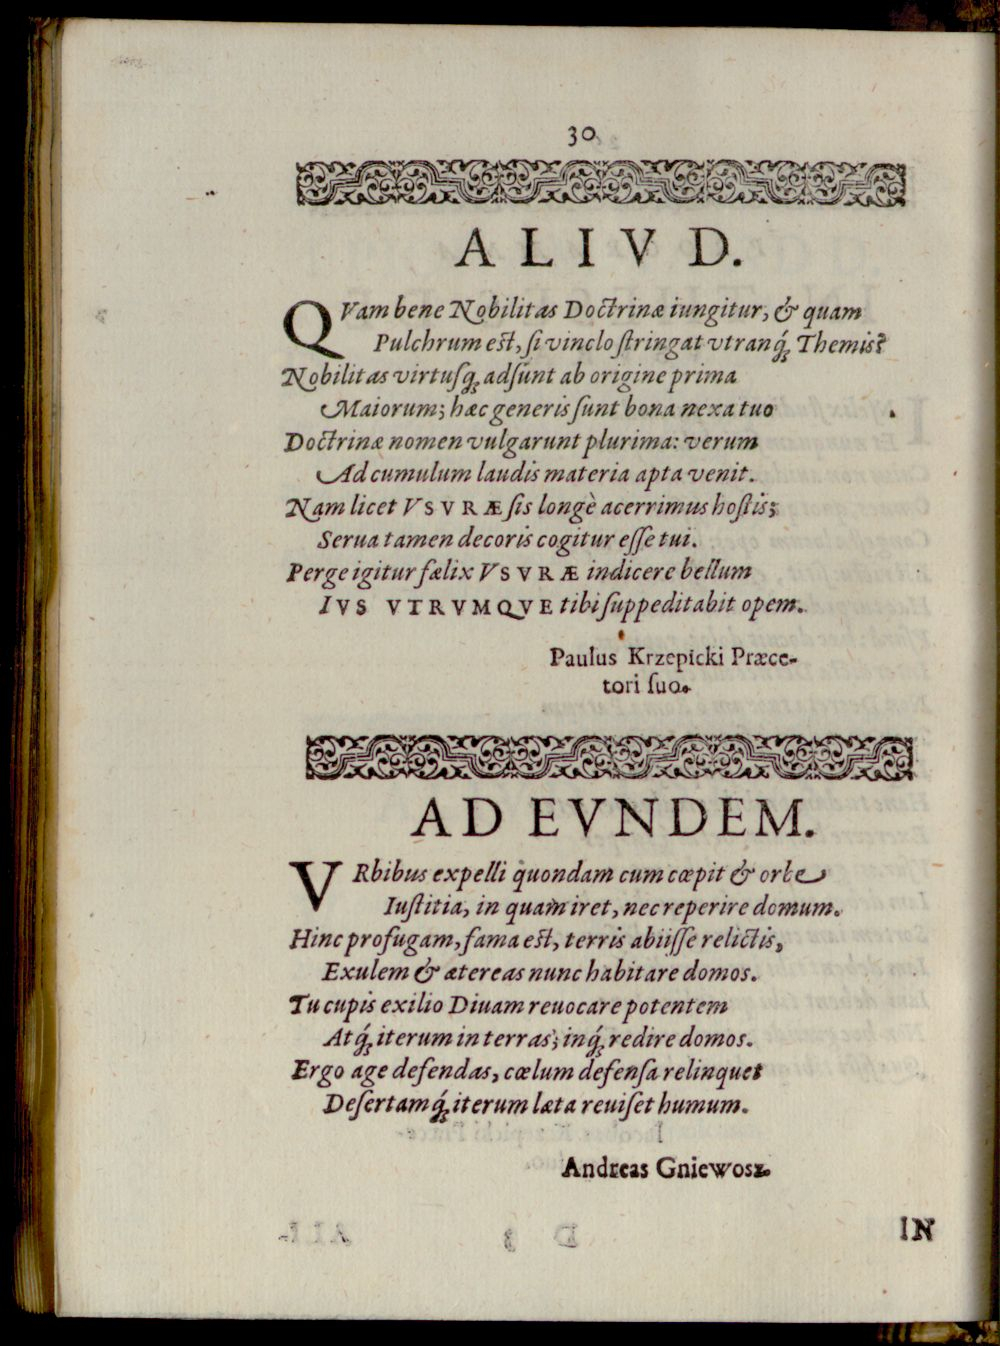 30
ALIVD.
QVam bene Nobilitas Doctrinæ iungitur, & quam
Pulchrum est, ſi vinclo ſtringat vtranq́; Themis?
Nobilitas virtuſq; adſunt ab origine prima
Maiorum; hæc generis ſunt bona nexa tuo
Doctrinæ nomen vulgarunt plurima: verum
Ad cumulum laudis materia apta venit.
Nam licet VSVRÆ ſis longè acerrimus hoſtis;
Serua tamen decoris cogitur eſſe tui.
Perge igitur fælix VSVRÆ indicere bellum
IVS VTRVMQVE tibi ſuppeditabit opem.
Paulus Krzepicki Præce-
tori ſuo.
AD EVNDEM.
VRbibus expelli quondam cum cœpit & orbe
Iuſtitia, in quam iret, nec reperire domum.
Hinc profugam, fama est, terris abiiſſe relictis,
Exulem & ætereas nunc habitare domos.
Tu cupis exilio Diuam reuocare potentem
Atq́; iterum in terras; inq́; redire domos.
Ergo age defendas, cœlum defenſa relinquet
Deſertamq́; iterum læta reuiſet humum.
Andreas Gniewosz.
IN